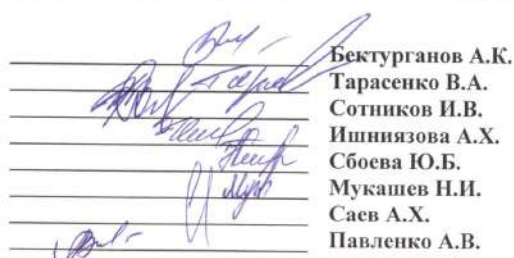 Бектурганов А.К.
Тарасенко В.А.
Сотников И.В.
Ишниязова А.Х.
Сбоева Ю.Б.
Мукашев Н.И.
Саев А.Х.
Павленко А.В.